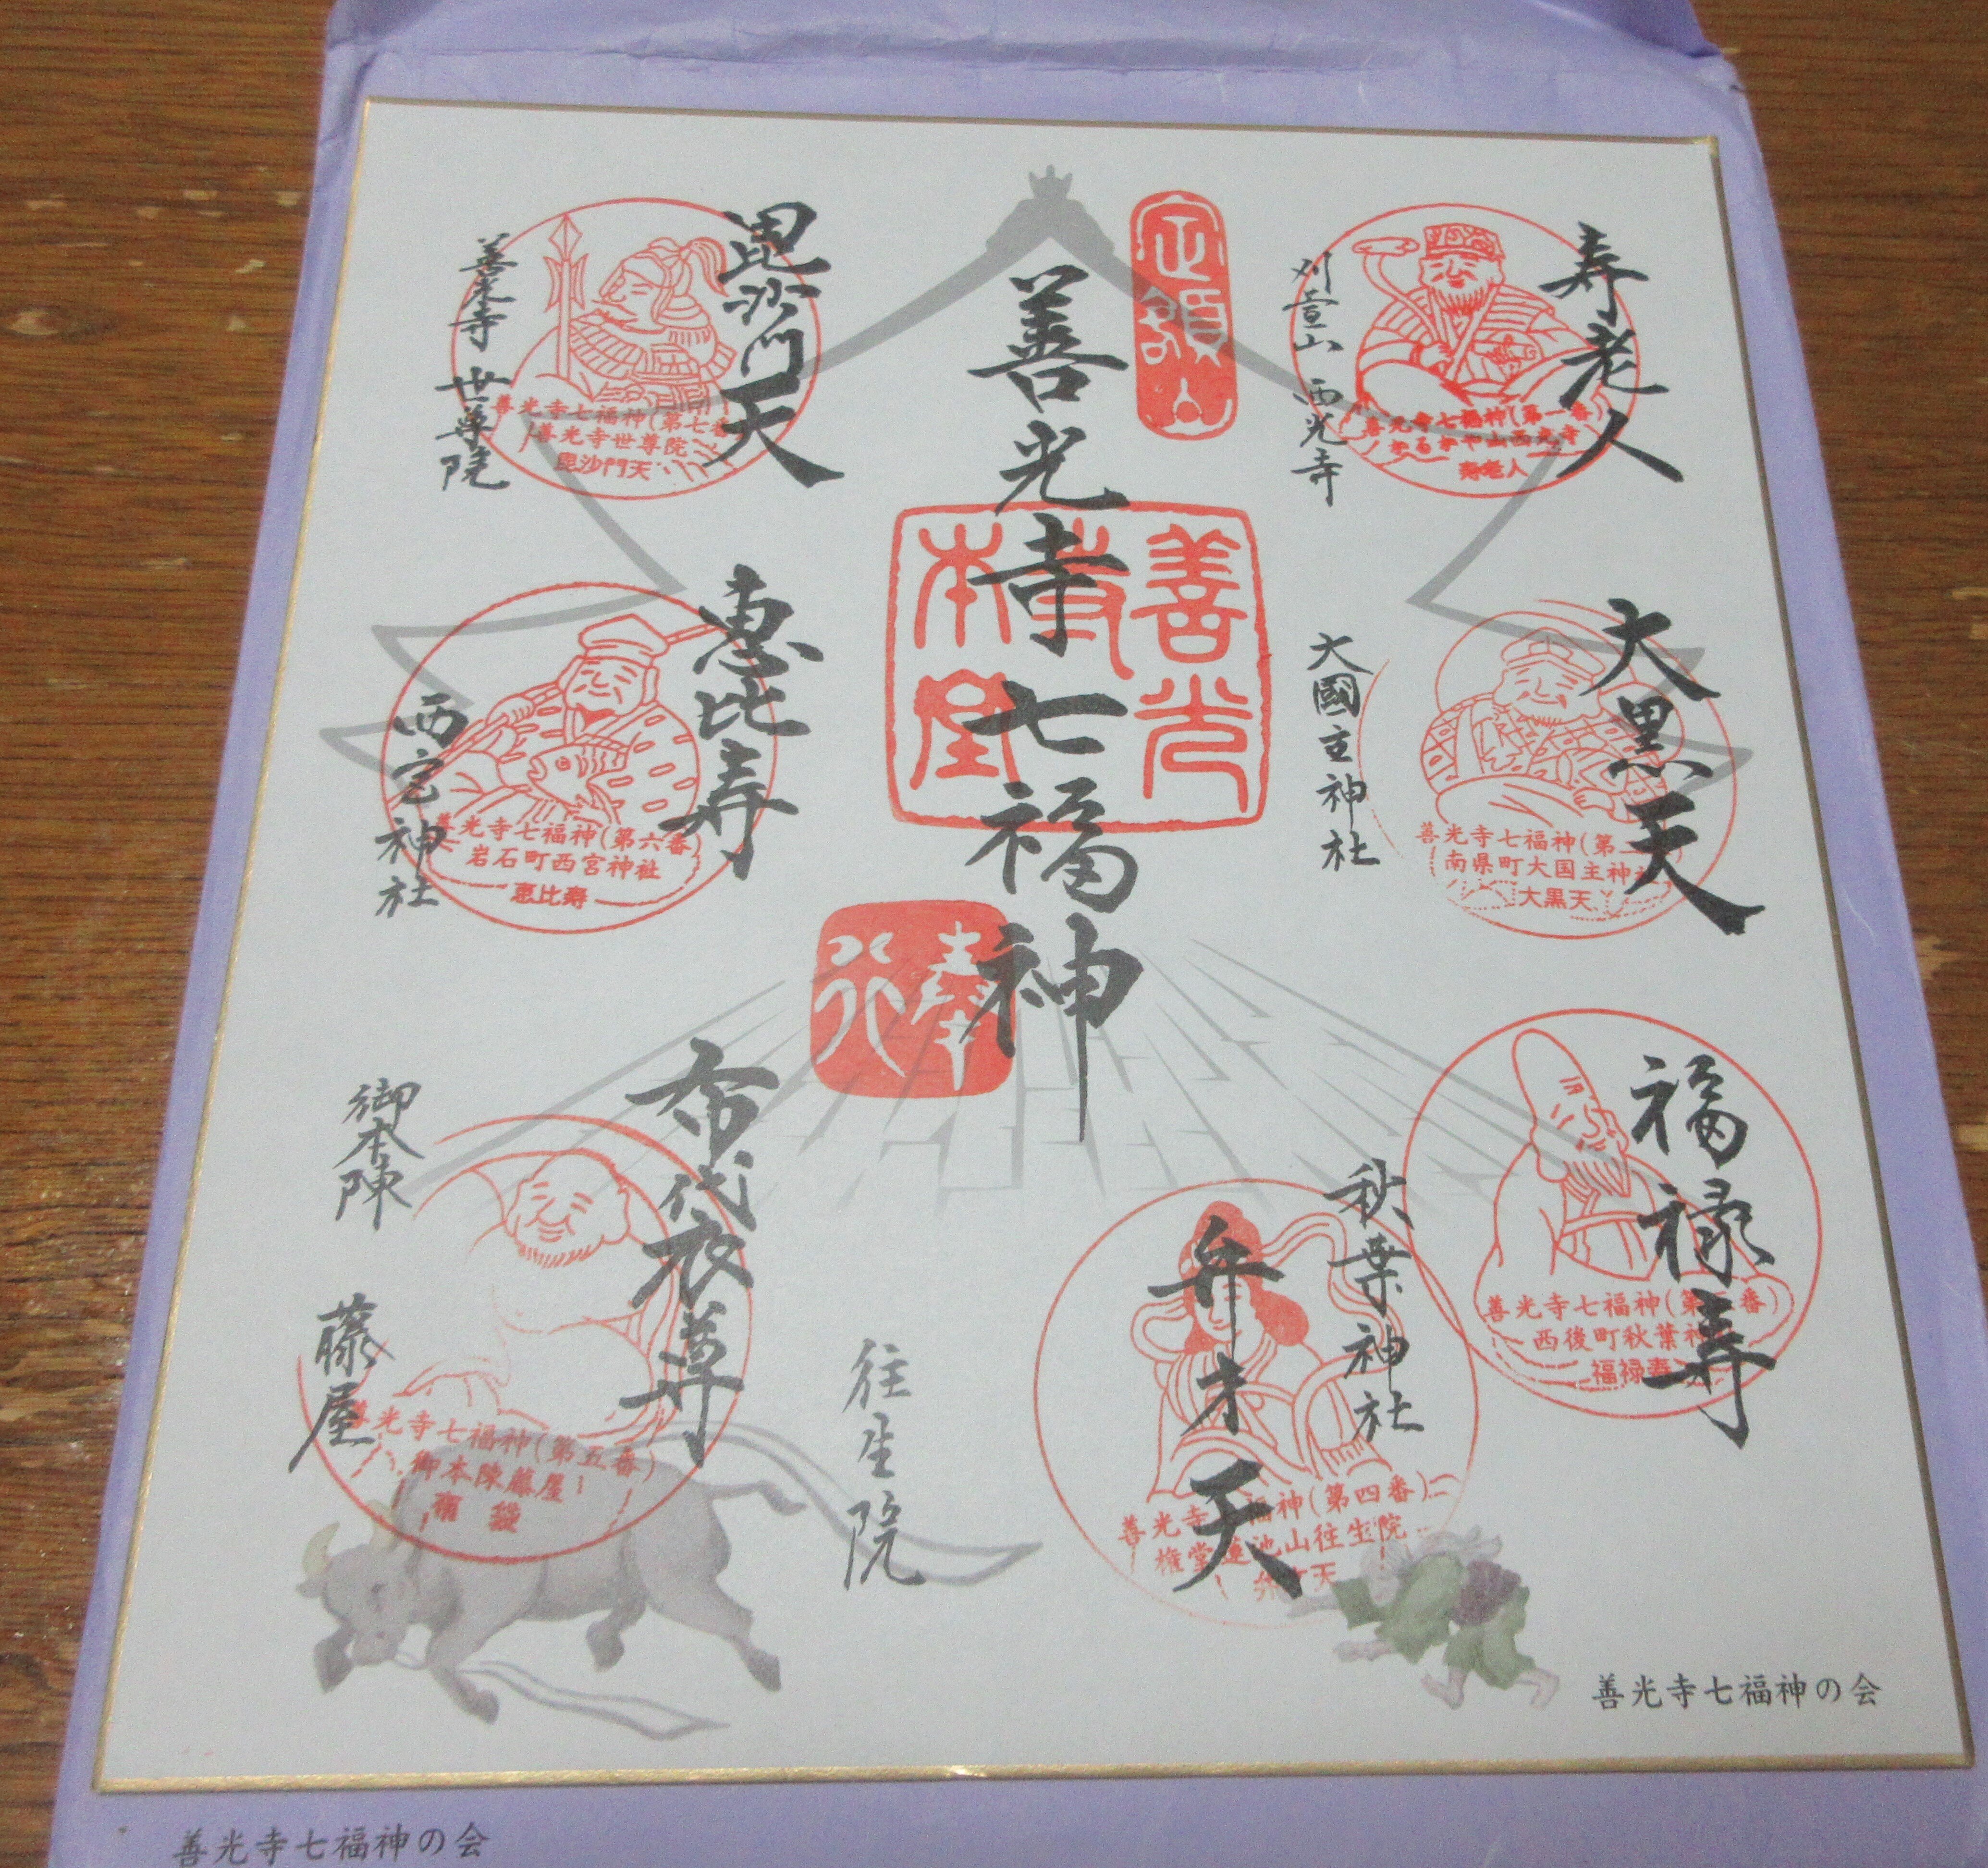 寿老人
刈萱山 西光寺
善光寺七福神(第一番)
かるかや山西光寺
寿老人
大黒天
大國主神社
善光寺七福神(第二
南県町大国主神社
大黒天
福禄寿
秋葉神社
善光寺七福神(第三番)
西後町秋葉神
福禄寿
弁才天
往生院
善光寺七福神(第四番)
権堂蓮池山往生院
弁才天
定額山
善光寺七福神
善光寺本堂
奉行
毘沙門天
善光寺 世尊院
善光寺七福神(第七番
善光寺世尊院
毘沙門天
恵比寿
西宮神社
善光寺七福神(第六番)
岩石町西宮神社
恵比寿
布代衣尊
御本陳 藤屋
善光寺七福神(第五番)
御本陳藤屋
布袋
善光寺七福神の会
善光寺七福神の会